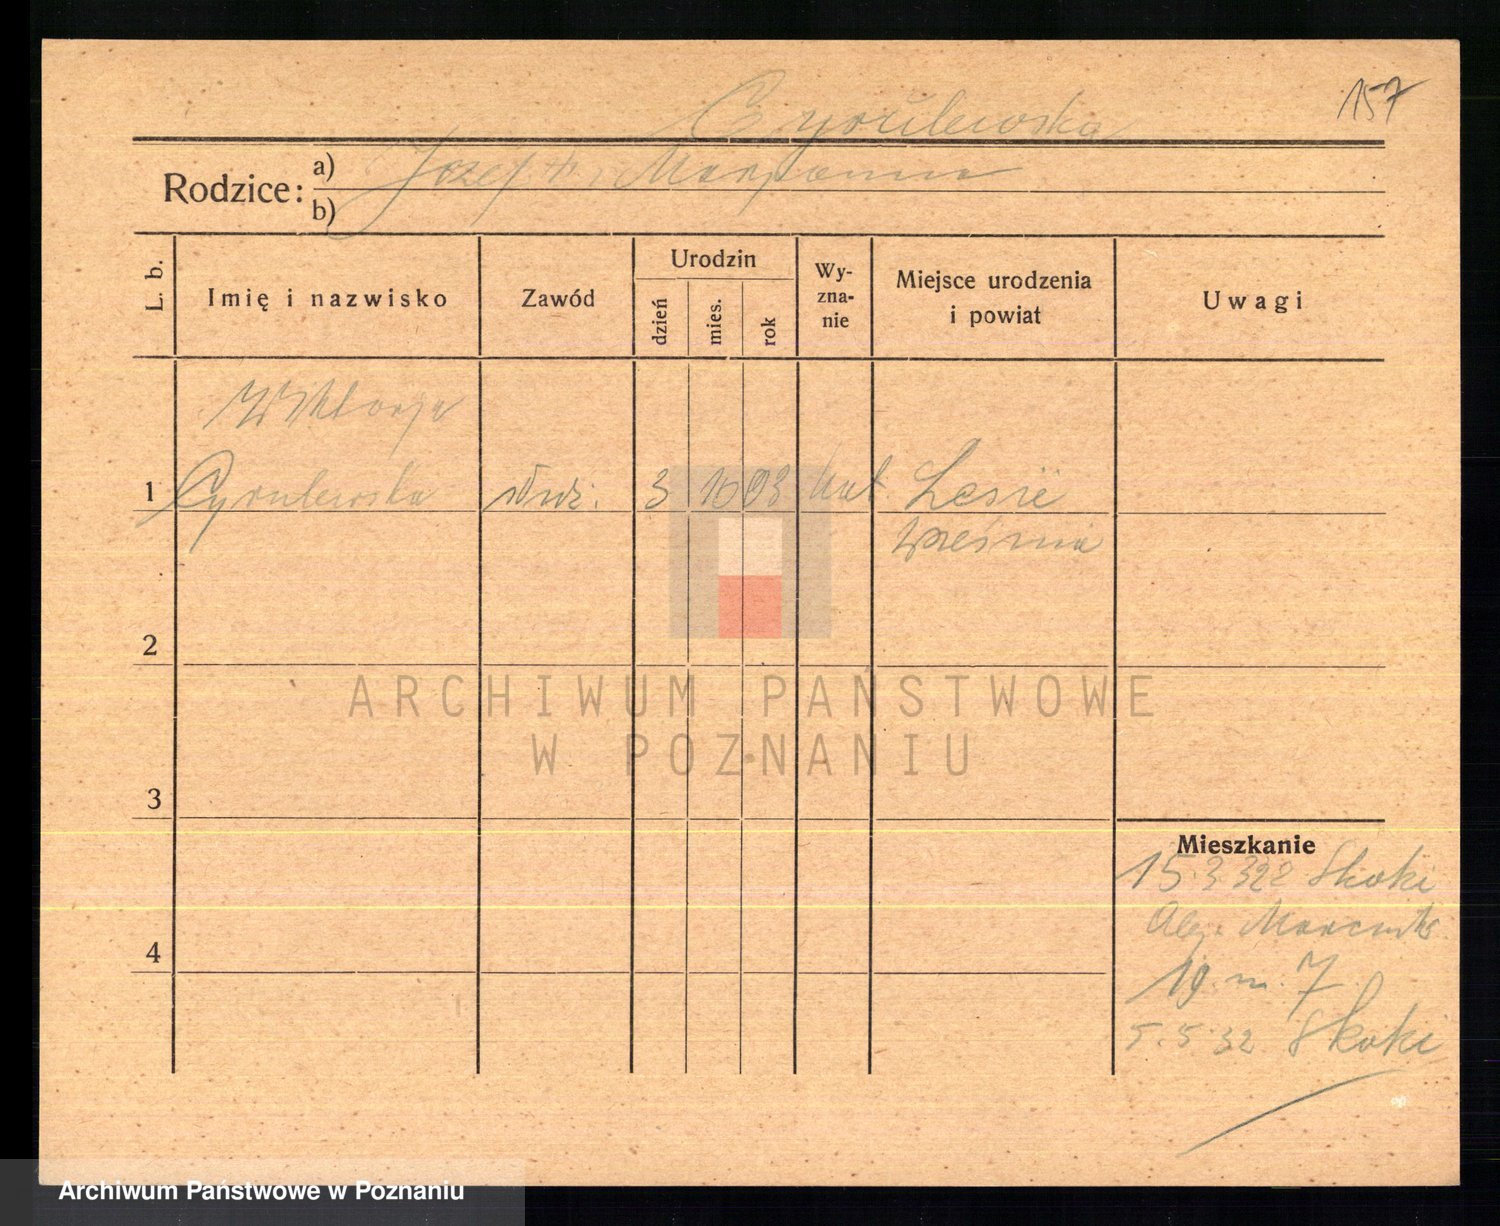 157
Cyrulewska
Rodzice: a) Józef i Marjanna
b)
L. b. Imię i nazwisko Zawód Urodzin dzień mies. rok Wy-zna-nie Miejsce urodzenia i powiat Uwagi
Wiktorja
1 Cyrulewska służ. 3 10 03 kat
Września
2
ARCHIWUM PAŃSTWOWE
W POZNANIU
3
Mieszkanie
15.3.32 Skoki
4
19 m. 7
5.5.32 Skoki
Archiwum Państwowe w Poznaniu